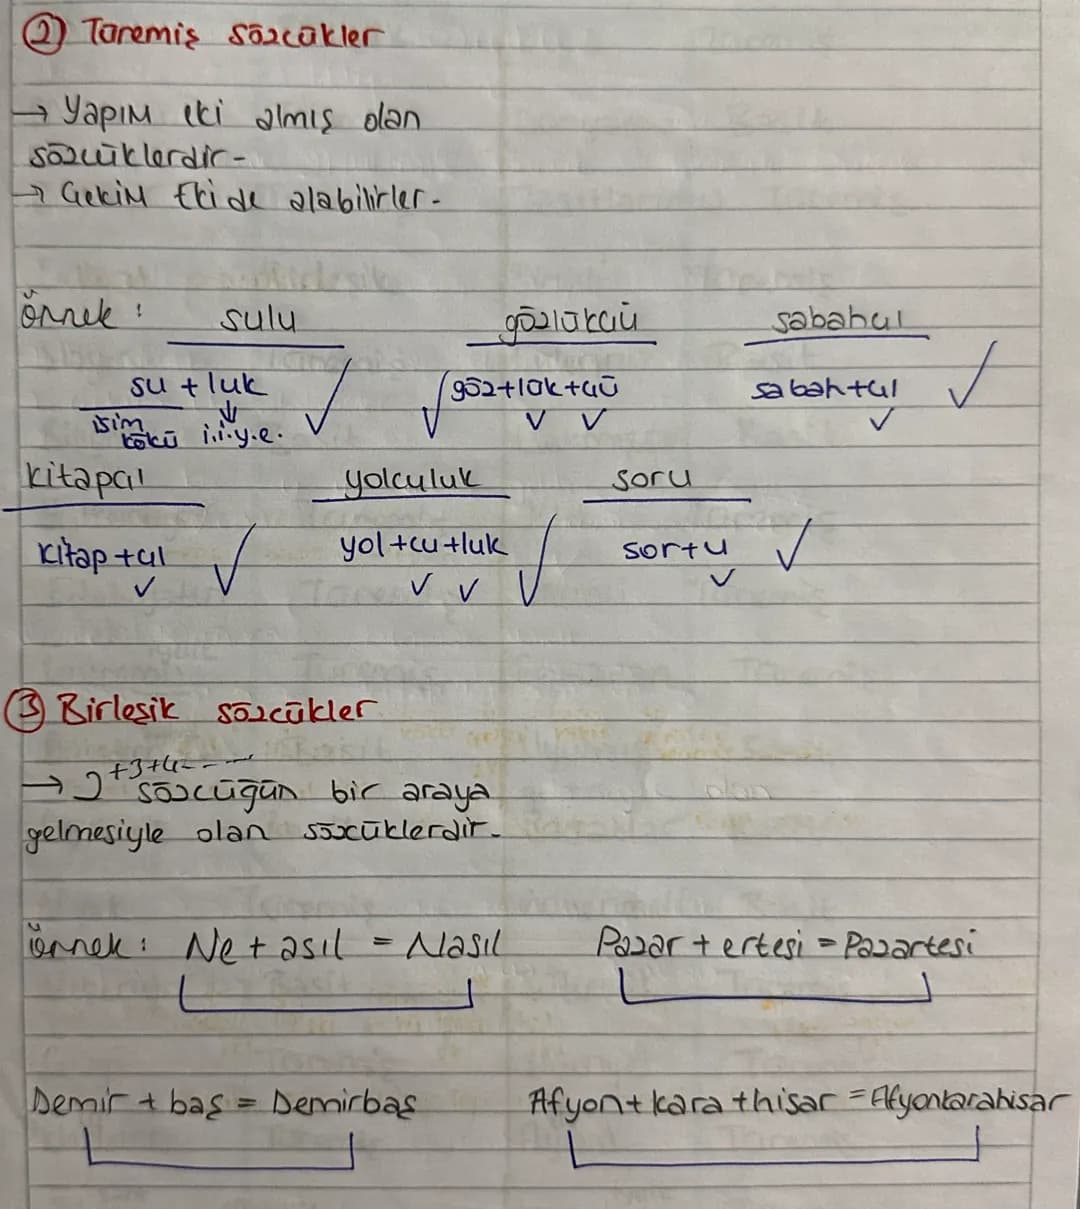 ② Türemiş sözcükler
→ Yapım eki almış olan
sözcüklerdir-
→ Çekim Eki de alabilirler-
örnek : sulu gözlükçü sabahçı
su + luk göz+lük+çü sabah+çı
isim kökü i.i.y.e.
kitapçı yolculuk soru
kitap+çı yol+cu+luk sor+u
③ Birleşik sözcükler
→ 2 +3+4- - - -
sözcüğün bir araya
gelmesiyle olan sözcüklerdir-
örnek : Ne + asıl = Nasıl Pazar + ertesi = Pazartesi
Demir + baş = Demirbaş Afyon + kara + hisar = Afyonkarahisar